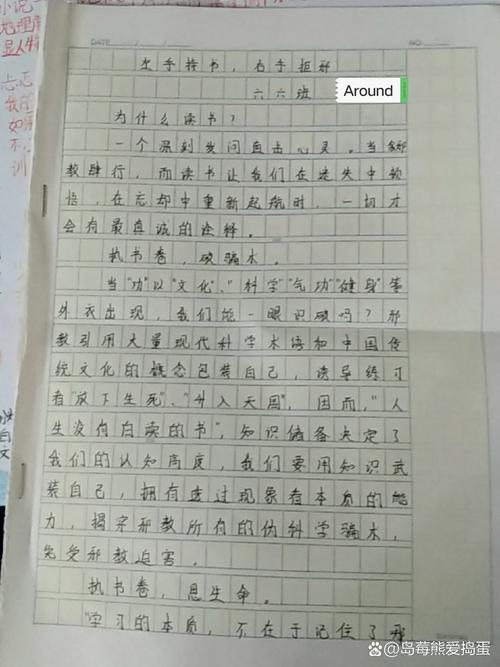 小说
地理
显人物
忐忑
我的
如果
不,
训
DATE
NO
左手持书,右手拒邪
六六班
Around
为什么读书?
一个深刻发问直击心灵。当邪
教肆行,而读书让我们在迷失中顿
悟,在忘却中重新起航时,一切才
会有最真诚的诠释。
执书卷,破骗术。
当“功”以“文化”、“科学”“气功”“健身”等
外衣出现,我们能一眼识破吗?邪
教引用大量现代科学术语和中国传
统文化的概念包装自己,诱导练习
者“放下生死”、“升入天国”,因而,“人
生没有白读的书”,知识储备决定了
我们的认知高度,我们要用知识武
装自己,拥有透过现象看本质的能
力,揭穿邪教所有的伪科学骗术,
免受邪教迫害。
执书卷,思生命。
“学习的本质,不在于记住了那
白
文
@岛莓熊爱捣蛋